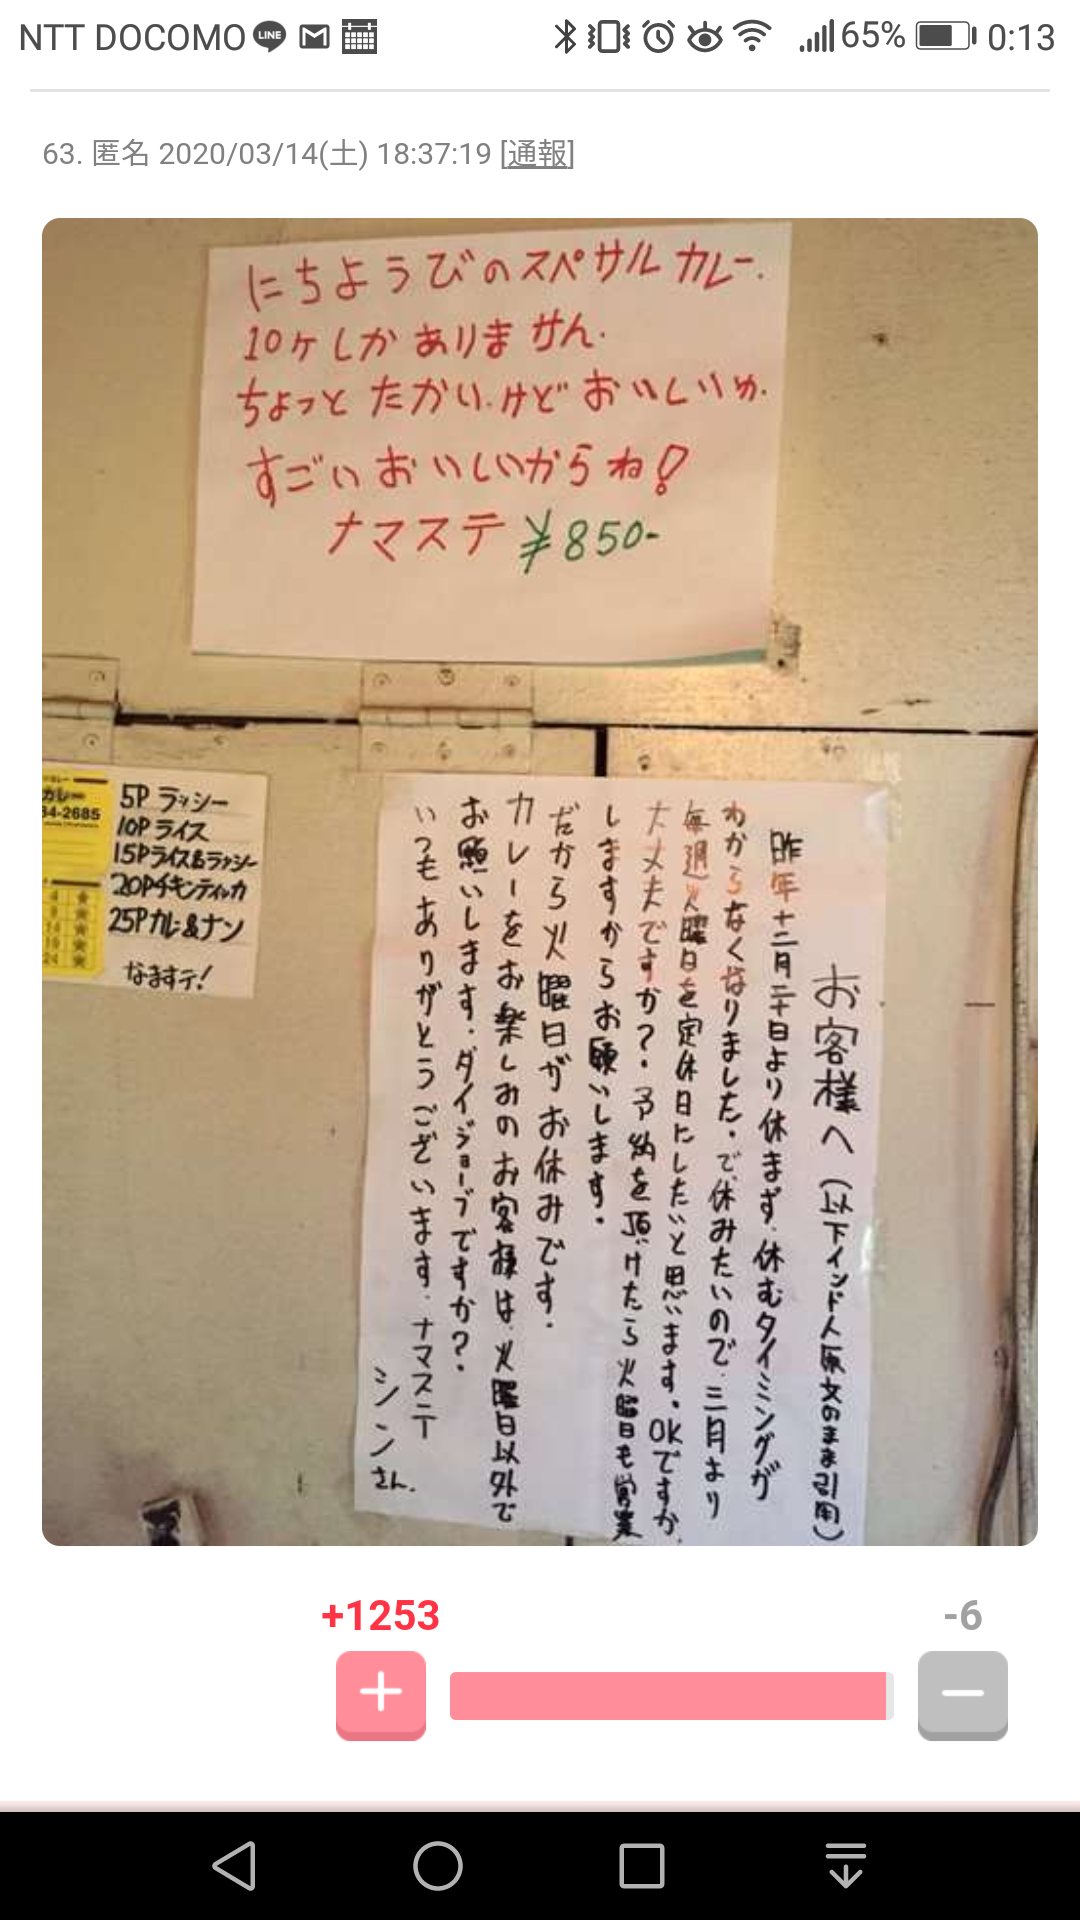 NTT DOCOMO LINE 65% 0:13
63. 匿名 2020/03/14(土) 18:37:19 [通報]
にちようびのスペサルカレー.
10ケしかありません.
ちょっとたかい.けどおいしいゅ.
すごいおいしいからね!
ナマステ ¥850-
カレー
34-2685
5P ラッシー
10P ライス
15Pライス&ラッシー
20Pチキンティッカ
25Pカレー&ナン
なますテ!
お客様へ(以下インド人原文のまま引用)
昨年十二月二十日より休まず.休むタイミングが
わからなくなりました.で.休みたいので.三月より
毎週火曜日を定休日にしたいと思います。OKですか.
大丈夫ですか?.予約を頂けたら火曜日も営業
しますからお願いします.
だから火曜日がお休みです.
カレーをお楽しみのお客様は.火曜日以外で
お願いします.ダイジョーブですか?.
いつもありがとうございます.ナマステ
シンさん.
+1253
-6